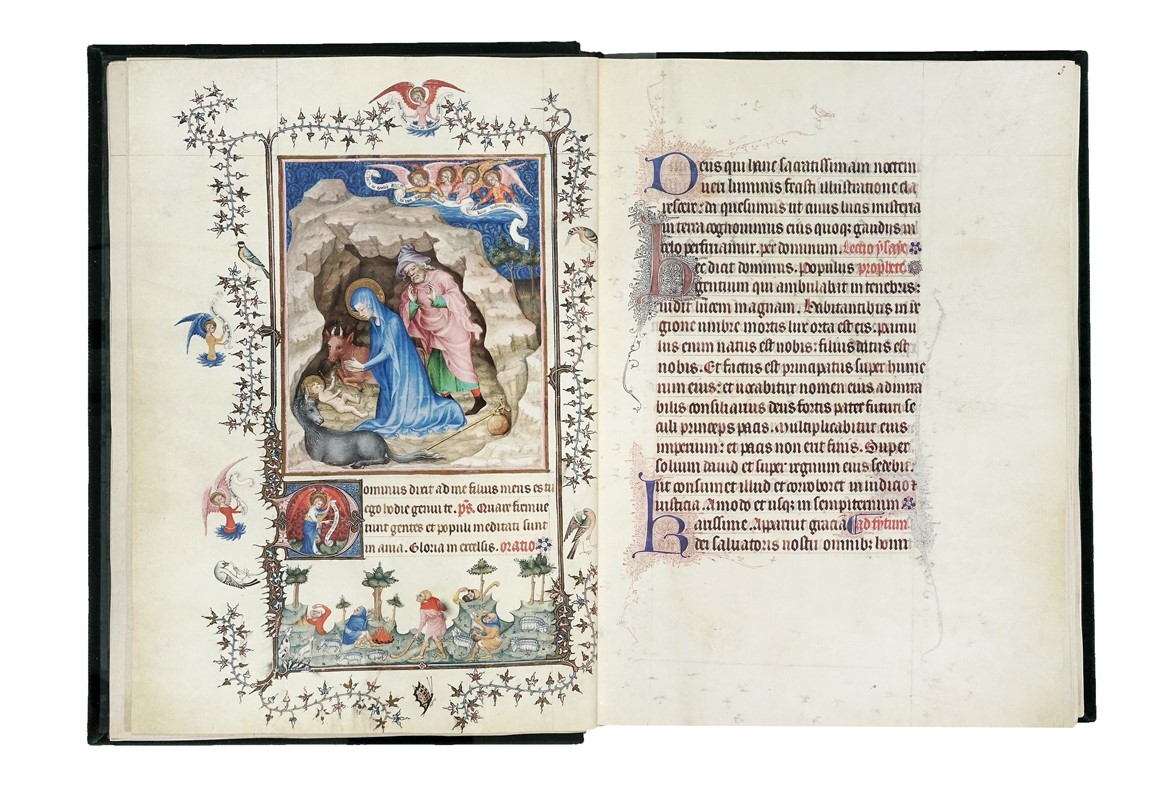 ominus dixit ad me filius meus es tu
ego hodie genui te. ps. Quare fremue
runt gentes et populi meditati sunt
in ania. Gloria in excelsis. oratio
Deus qui hanc sacratissimam noctem
ueri luminis fecisti illustratione cla
rescere: da quesumus ut cuius lucis misteria
in terra cognouimus eius quoq; gaudiis in
celo perfruamur. per dominum. Lectio ysaye
hec dicit dominus. Populus prophete
gentium qui ambulabat in tenebris:
uidit lucem magnam. Habitantibus in re
gione umbre mortis lux orta est eis. paruu
lus enim natus est nobis: filius datus est
nobis. Et factus est principatus super hume
rum eius: et uocabitur nomen eius admira
bilis consiliarius deus fortis pater futuri se
culi princeps pacis. multiplicabitur eius
imperium: et pacis non erit finis. Super
solium dauid et super regnum eius sedebit.
ut confirmet illud et corroboret in iudicio et
iusticia. Amodo et usq; in sempiternum
karissime. Aparuit gracia ad tytum
dei saluatoris nostri omnib; homi